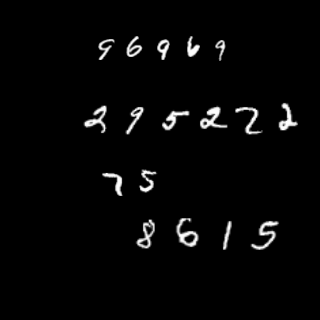 96969
295222
75
8615